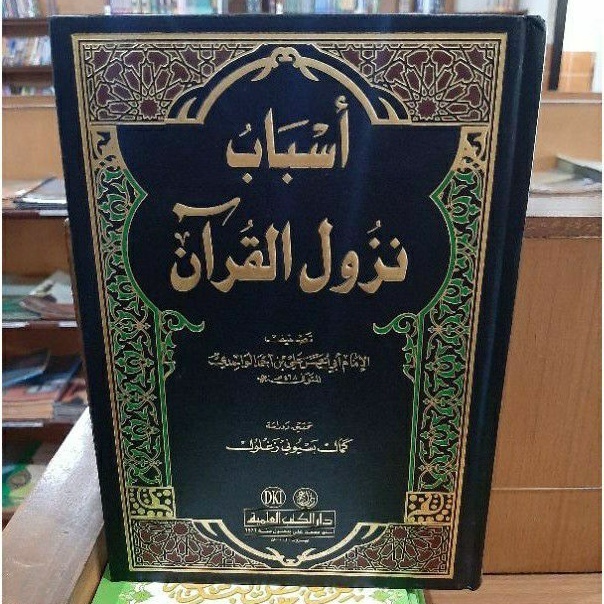 أَسْبَابُ
نُزُول القُرآن
تصنيف
الإمام أبي الحسن علي بن أحمد الواحدي
المتوفى ٤٦٨ هـ
تحقيق ودراسة
كمال بسيوني زغلول
DKI
دار الكتب العلمية